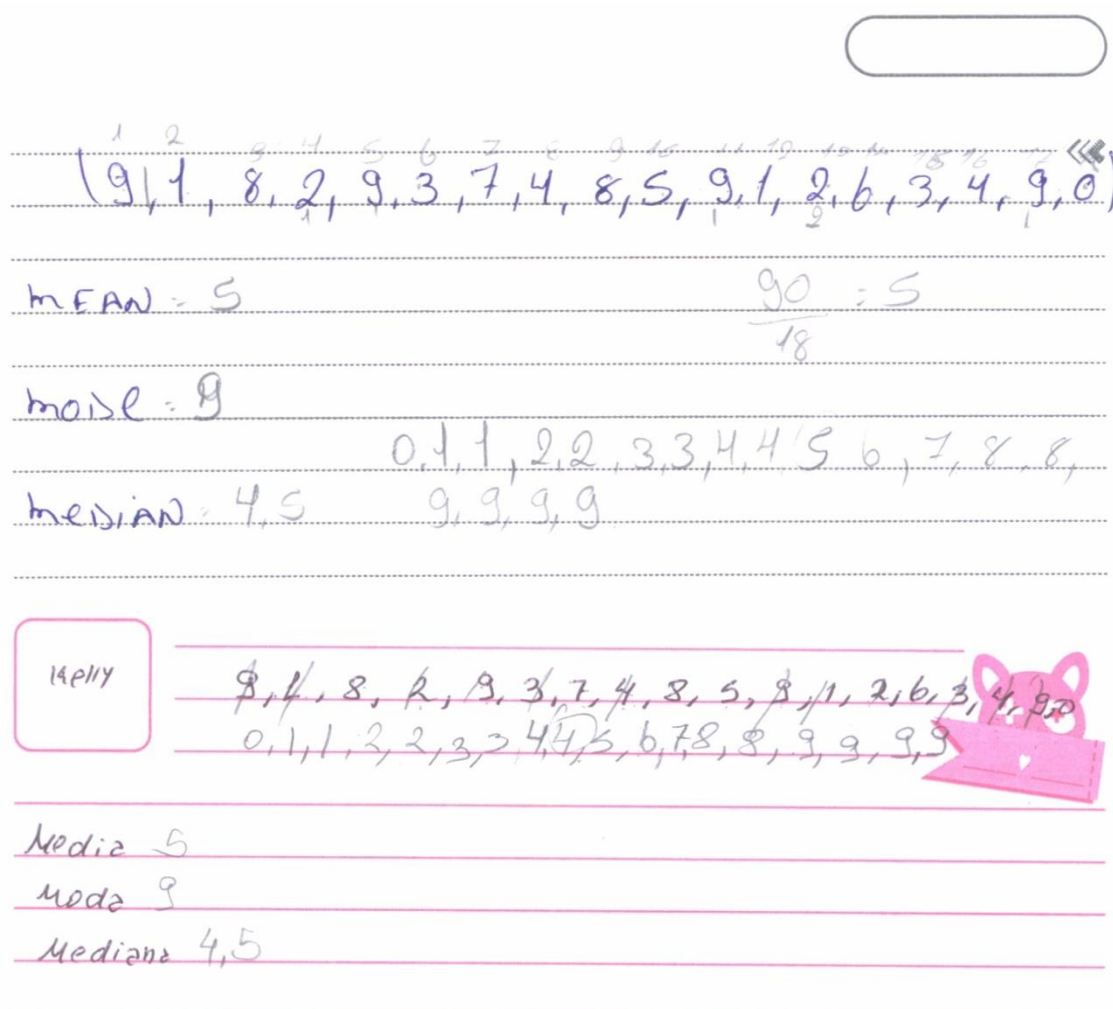 1 2 3 4 5 6 7 8 9 10 11 12 13 14 15 16 17
(9,1, 8, 2, 9, 3, 7, 4, 8, 5, 9, 1, 2, 6, 3, 4, 9, 0)
1 1 2 1
mEAN : 5
90 : 5
18
moDe : 9
0, 1, 1, 2, 2, 3, 3, 4, 4 5 6, 7, 8, 8,
meDiAN : 4,5 9, 9, 9, 9
Kelly
9, 1, 8, 2, 9, 3, 7, 4, 8, 5, 9, 1, 2, 6, 3, 4, 9, 0
0, 1, 1, 2, 2, 3, 3, 4, 4, 5, 6, 7, 8, 8, 9, 9, 9, 9
Media 5
Moda 9
Mediana 4,5